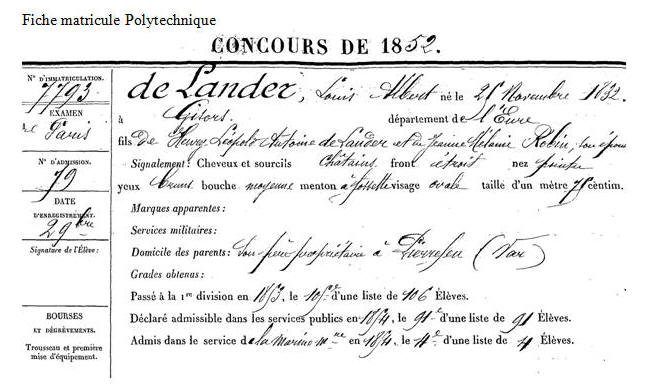 Fiche matricule Polytechnique
CONCOURS DE 1852.
N° D'IMMATRICULATION.
7793
EXAMEN
de Paris
N° D'ADMISSION.
79
DATE
D'ENREGISTREMENT.
29bre
Signature de l'Élève:
BOURSES
ET DÉGRÈVEMENTS.
Trousseau et première
mise d'équipement.
de Lander, Louis Albert né le 25 Novembre 1832.
à Gisors. département de l'Eure
fils De Henry Léopold Antoine de Lander et de Jeanne Mélanie Robin, son épouse
Signalement: Cheveux et sourcils châtains front étroit nez pointu
yeux bruns bouche moyenne menton à fossette visage ovale taille d'un mètre 75 centim.
Marques apparentes:
Services militaires:
Domicile des parents: son père propriétaire à Pierrefeu (Var)
Grades obtenus:
Passé à la 1re division en 1853, le 105e d'une liste de 106 Élèves.
Déclaré admissible dans les services publics en 1854, le 91e d'une liste de 91 Élèves.
Admis dans le service de la marine en 1854, le 4e d'une liste de 4 Élèves.